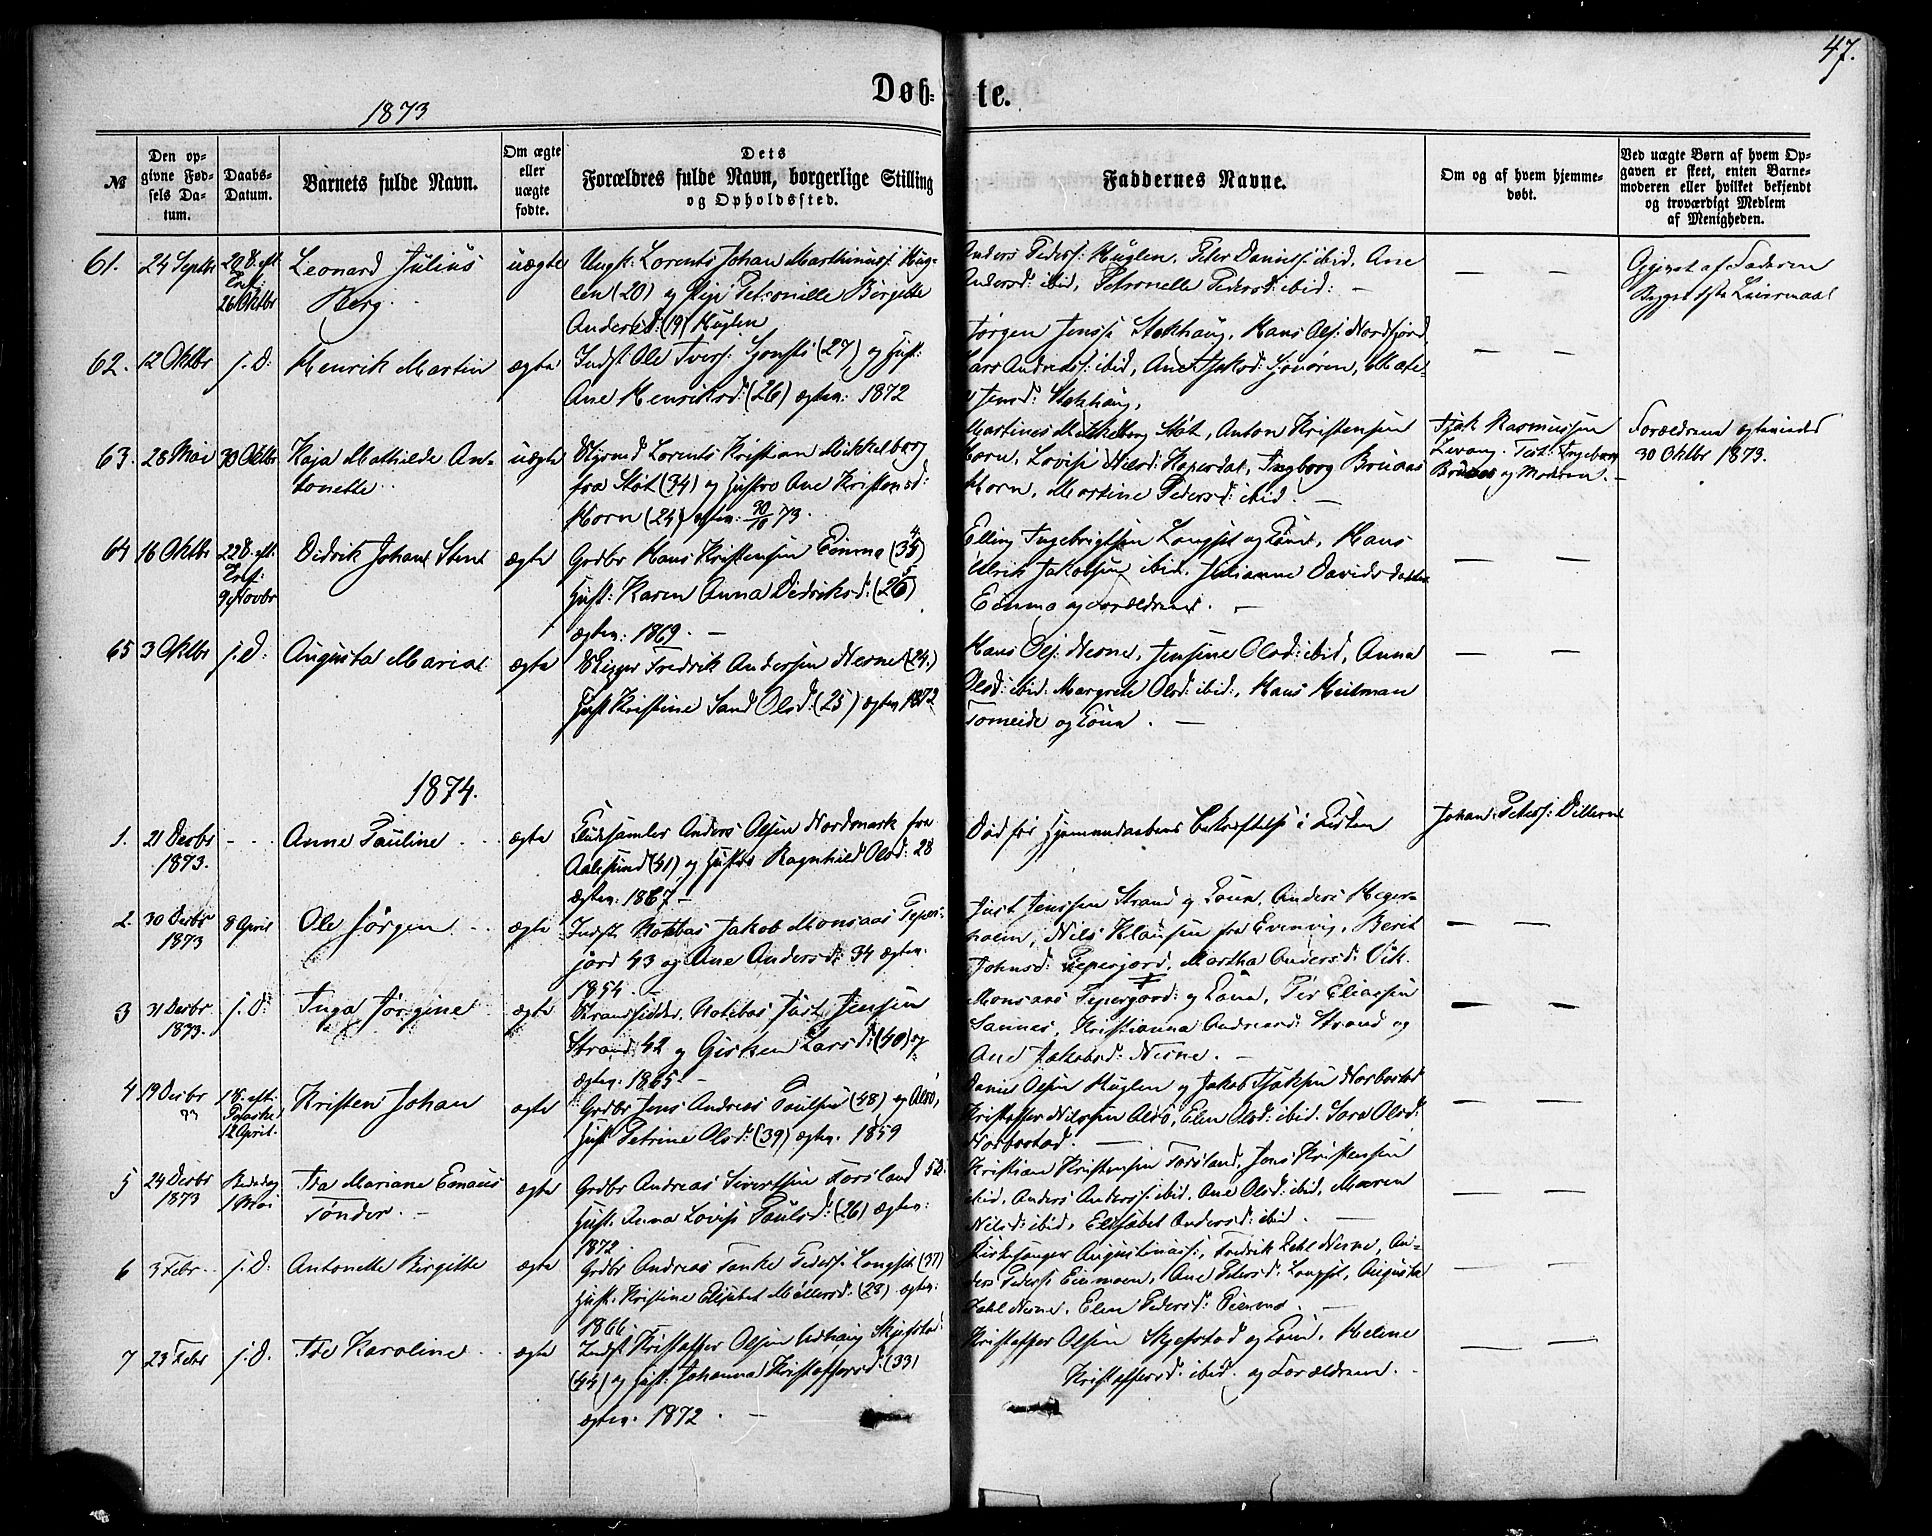 47.
Døb-te.
1873
№
Den opgivne Fødsels Datum.
Daabs-Datum.
Barnets fulde Navn.
Om ægte eller uægte fødte.
Dets Forældres fulde Navn, borgerlige Stilling og Opholdssted.
Faddernes Navne.
Om og af hvem hjemmedøbt.
Ved uægte Børn af hvem Opgaven er skeet, enten Barnemoderen eller hvilket bekjendt og troværdigt Medlem af Menigheden.
61. 24 Septbr 20 S. eft Tref: 26 Oktbr
Leonard Julius Berg
uægte
Ungk: Lorents Johan Marthinuss: Huglen (20) og Pige Petronille Birgitte Andersd: (19) Huglen
Anders Peders: Huglen, Peter Daniels: ibid, Ane
Andersd: ibid, Petronelle Pedersd: ibid:
— —
Opgivet af Faderen
Begges 1ste Leiermaal
62. 12 Oktbr s. D:
Henrik Martin
ægte
Indst Ole Ivers: (27) og Hust:
Ane Henriksd: (26) ægtev: 1872
Jørgen Jenss: Stokhaug, Hans Ols: Nordfjord,
Lars Andreass: ibid, Ane Isaksd: Sjonøren,
Jensd: Stokhaug,
— —
63. 28 Mai 30 Oktbr
Kaja Mathilde Antonette
uægte
Lorents Kristian Mikkelborg
fra Støt (34) og Hustro Ane Kristensd:
Horn (24) ægtev: 30/10 73.
Martines Mikkelborg Støt, Anton Kristensen
Horn, Lovise Nilsd: Koperdal, Ingborg Bruaas
Horn, Martine Pedersd: ibid.
Isak Rasmussen
Levang. Test: Ingeborg
Bruaas og Moderen.
Forældrene ægteviede
30 Oktbr 1873.
64 16 Oktbr 22 S. eft: Tref: 9 Novbr
Didrik Johan Stent
ægte
Grdbr Hans Kristensen (35)
Hust: Karen Anna Didriksd: (26)
ægtev: 1869.
Elling Ingebrigtsen Langset og Kone, Hans
Ulrik Jakobsen ibid, Julianne Davids datter
og Forældrene.
— —
65 3 Oktbr s. D:
Augusta Maria
ægte
Fredrik Andersen Nesne (24)
Hust Kristine Sand Olsd: (25) ægtev 1872
Hans Ols: Nesne, Jensine Olsd: ibid, Anna
Olsd: ibid: Margrete Olsd: ibid:, Hans Heilman
Tomeide og Kone.
— —
1874.
1. 21 Decbr 1873. - - -
Anne Pauline
ægte
Anders Olsen Nordmark fra
Aalesund (41) og Hustro Ragnhild Olsd: 28
ægtev. 1867
Død før Hjemmedaabens Bekræftelse i Kirken
Johan Peters: Dilkerne
2. 30 Decbr 1873 8 April
Ole Jørgen
ægte
Indst Notbas Jakob Monsaas
43 og Ane Andersd: 34 ægtev:
1854.
Just Jenssen Strand og Kone, Anders
Nils Klausen fra Evenvig, Berit
Johnsd: Martha Andersd: Vik.
— —
3 31 Decbr 1873. s. D:
Inga Jørgine
ægte
Notebas Just Jensen
Strand 42 og Gisken Larsd: (40)
ægtev. 1865.
Monsaas og Kone, Per Eliassen
Sannes, Kristianna Andreasd: Strand og
Ane Jakobsd: Nesne.
— —
4 19 Decbr 73 1 S. eft: Paaske 12 April.
Kristen Johan
ægte
Grdbr Jens Andreas Paulsen (48) og Alsø,
Hust Petrine Olsd: (39) ægtev. 1859
Daniel Olsen Huglen og Jakob Isaksen Norbostad
Kristoffer Nilssen Alsø, Elen Olsd: ibid. Sara Olsd:
Norbostad.
— —
5 24 Decbr 1873 Bededag 1 Mai
Ida Mariane Emaus Tønder.
ægte
Grdbr Andreas Sivertsen Forsland 52
Hust: Anna Lovise Paulsd: (26) ægtev:
1872.
Kristian Kristensen Forsland, Jens Kristensen
ibid, Anders Anderss: ibid. Ane Olsd: ibid, Maren
Nilsd: ibid, Elisabet Andersd: ibid.
— —
6 3 Febr. s. D:
Antonette Birgitte
ægte
Grdbr Andreas Tanke Peders: Langset (37)
Hust: Kristine Elisabet Møllersd: (28) ægtev:
1866.
Kirkesanger Augustinuss:, Fredrik Zahl Nesne, Anders
Peders: Ane Petersd: Langset, Augusta
Zahl Nesne, Elen Pedersd:
— —
7 23 Febr s. D.
Ide Karoline
ægte
Indst Kristoffer Olsen Skjefstad
(44) og Hust: Johanna Kristoffersd: (33)
ægtev. 1872.
Kristoffer Olsen Skjefstad og Kone, Helene
Kristoffersd. ibid. og Forældrene.
— —